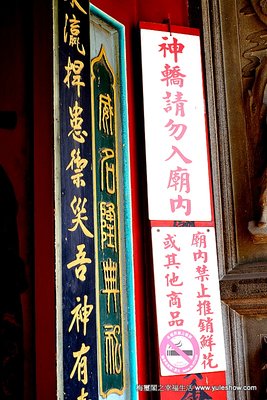 神轎請勿入廟內
廟內禁止推銷鮮花
或其他商品
威名典祀
瀛捍患禦災吾神有
梅璽閣之幸福生活 www.yuleshow.com